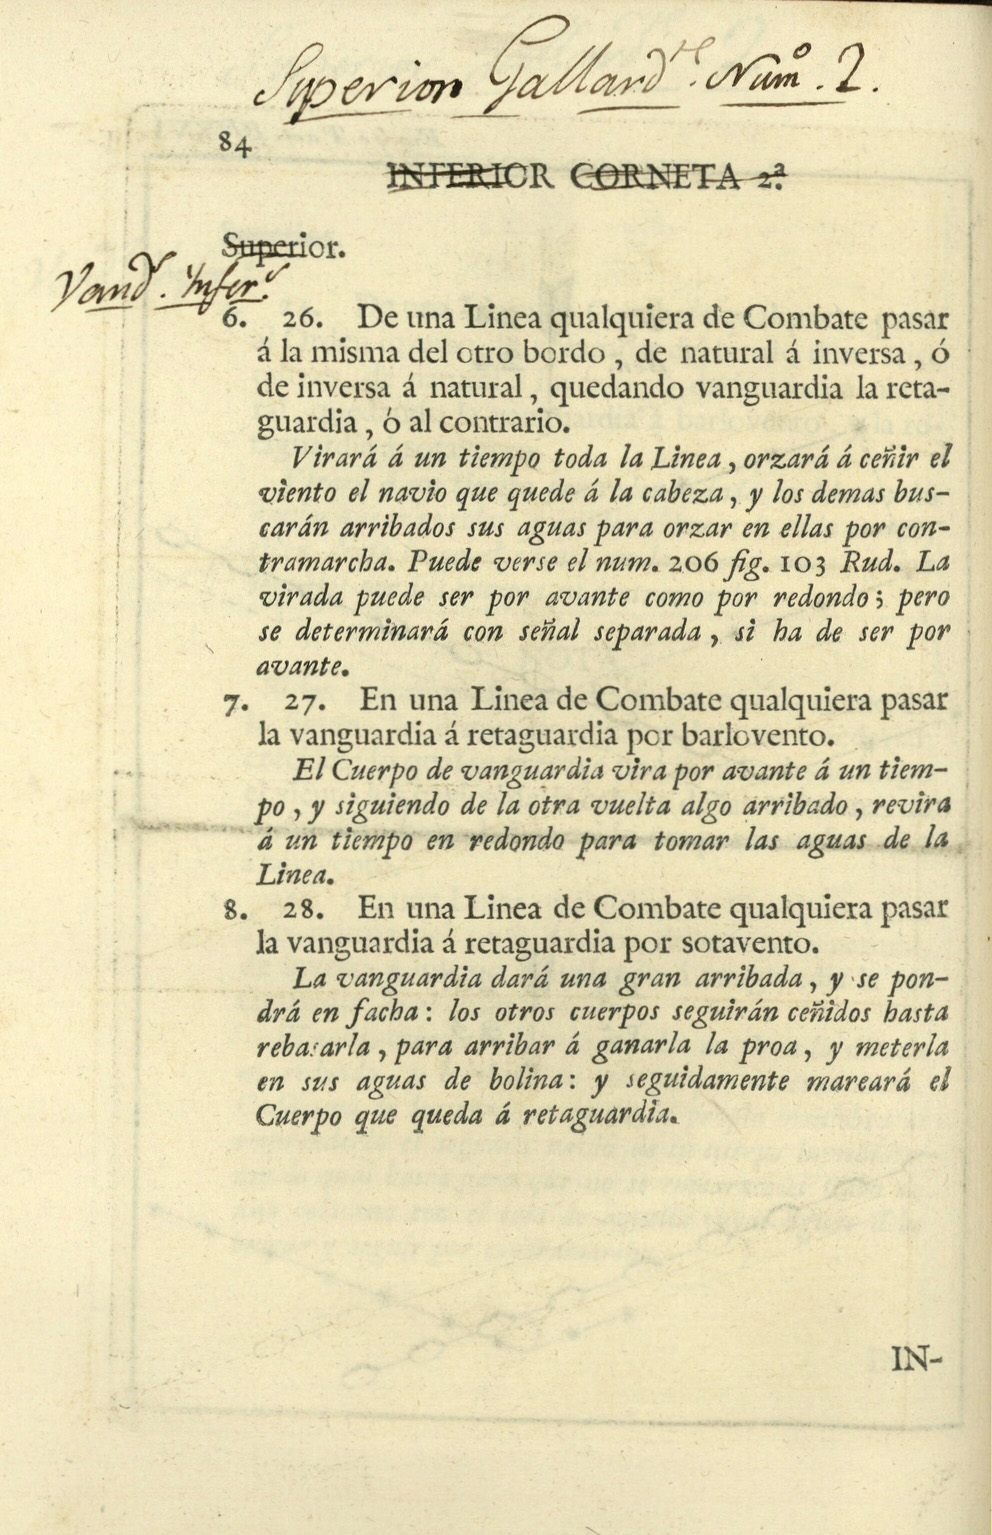 Superior Gallard.te Num.o 2.
84
INFERIOR CORNETA 2.ª
Superior.
Vand.s Infer.s
6. 26. De una Linea qualquiera de Combate pasar
á la misma del otro bordo, de natural á inversa, ó
de inversa á natural, quedando vanguardia la reta-
guardia, ó al contrario.
Virará á un tiempo toda la Linea, orzará á ceñir el
viento el navio que quede á la cabeza, y los demas bus-
carán arribados sus aguas para orzar en ellas por con-
tramarcha. Puede verse el num. 206 fig. 103 Rud. La
virada puede ser por avante como por redondo; pero
se determinará con señal separada, si ha de ser por
avante.
7. 27. En una Linea de Combate qualquiera pasar
la vanguardia á retaguardia por barlovento.
El Cuerpo de vanguardia vira por avante á un tiem-
po, y siguiendo de la otra vuelta algo arribado, revira
á un tiempo en redondo para tomar las aguas de la
Linea.
8. 28. En una Linea de Combate qualquiera pasar
la vanguardia á retaguardia por sotavento.
La vanguardia dará una gran arribada, y se pon-
drá en facha: los otros cuerpos seguirán ceñidos hasta
rebasarla, para arribar á ganarla la proa, y meterla
en sus aguas de bolina: y seguidamente mareará el
Cuerpo que queda á retaguardia.
IN-